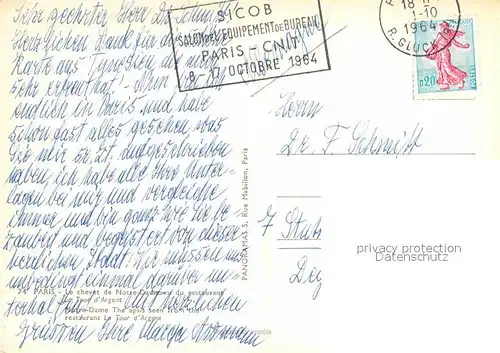 Sehr geehrter Herr Dr. Schmitt!
Herzlichen Dank für die
Karte aus Tunesien, die mich
sehr erfreut hat! Nun bin ich
endlich in Paris und habe
schon fast alles gesehen, was
Sie mir s. Zt. aufgeschrieben
haben, ich habe alle Ihre Unter-
lagen bei mir und vergleiche
immer und bin ganz wie Sie be-
zaubert und begeistert von dieser
herrlichen Stadt. Wir müssen uns
unbedingt einmal darüber un-
terhalten. Mit herzlichen
Grüssen Ihre
SICOB
SALON DE L'EQUIPEMENT DE BUREAU
PARIS - CNIT
8-17 OCTOBRE 1964
18 H
1-10
1964
R. GLUCK
0,20
Herrn
Dr. F. Schmitt
7 Stutt
privacy protection
Datenschutz
PANORAMAS 5, Rue Mabillon, Paris
74 PARIS - Le chevet de Notre-Dame vu du restaurant
La Tour d'Argent
Notre-Dame The apsis seen from the
restaurant La Tour d'Argent